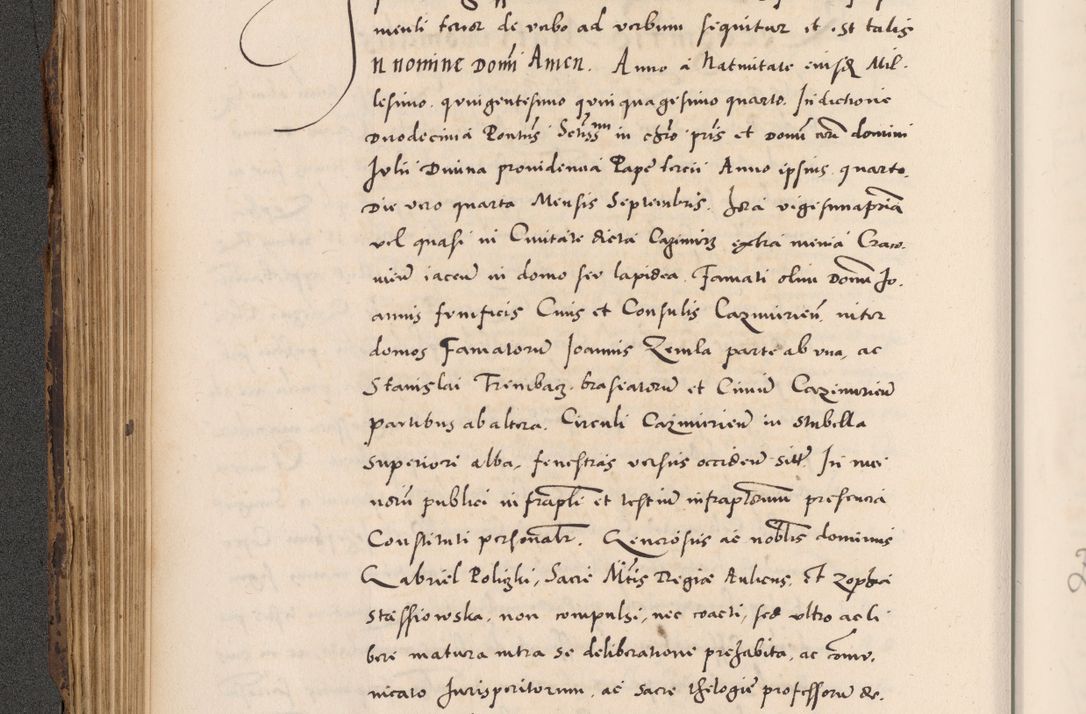 menti tenor de verbo ad verbum sequitur et est talis
In nomine Domi Amen. Anno a Natiuitate eiusd Mil-
lesimo quingentesimo quinquagesimo quarto. Indictione
Duodecima Pontūs Setissmi in chro pris et Domi domini
Julii Diuina prouidentia Pape tercii Anno ipsius quarto.
Die vero quarta Mensis Septembris. Hora vigesimaprīa
vel quasi in Ciuitate dicta Cazimirz extra menia Craco-
uieñ iaceñ in domo seu lapidea Famati olim Domī Jo-
annis Ciuis et Consulis Cazimirieñ inter
domos Famatorū Joannis Zemla parte ab vna, ac
Stanislai Trembacz braseatorū et Ciuiū Cazimirieñ
partibus ab altera. Circuli Cazimirieñ in stubella
superiori alba, fenestras versus occideñ sitt. In mei
notarii publici infrapti et testiū infraptorum presencia
Constituti personalr. Generosus ac noblis dominus
Gabriel Polizki, Sacre Mtis Regiæ Aulicus, Et Zophia
Stassiowska, non compulsi, nec coacti, sed vltro ac li
bere matura intra se deliberatione prehabita, ac comu-
nicato Jurisperitorum, ac Sacre thelogie professorū de-